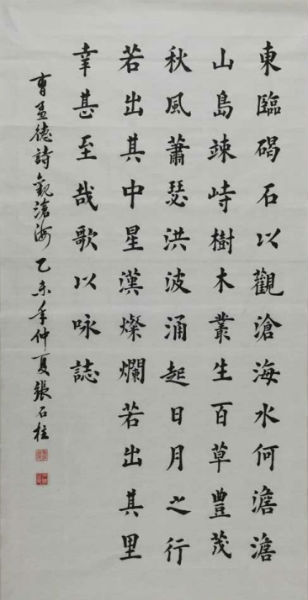 東臨碣石以觀滄海水何澹澹
山島竦峙樹木叢生百草豐茂
秋風蕭瑟洪波涌起日月之行
若出其中星漢燦爛若出其里
幸甚至哉歌以咏誌
曹孟德詩觀滄海乙未年仲夏張石柱